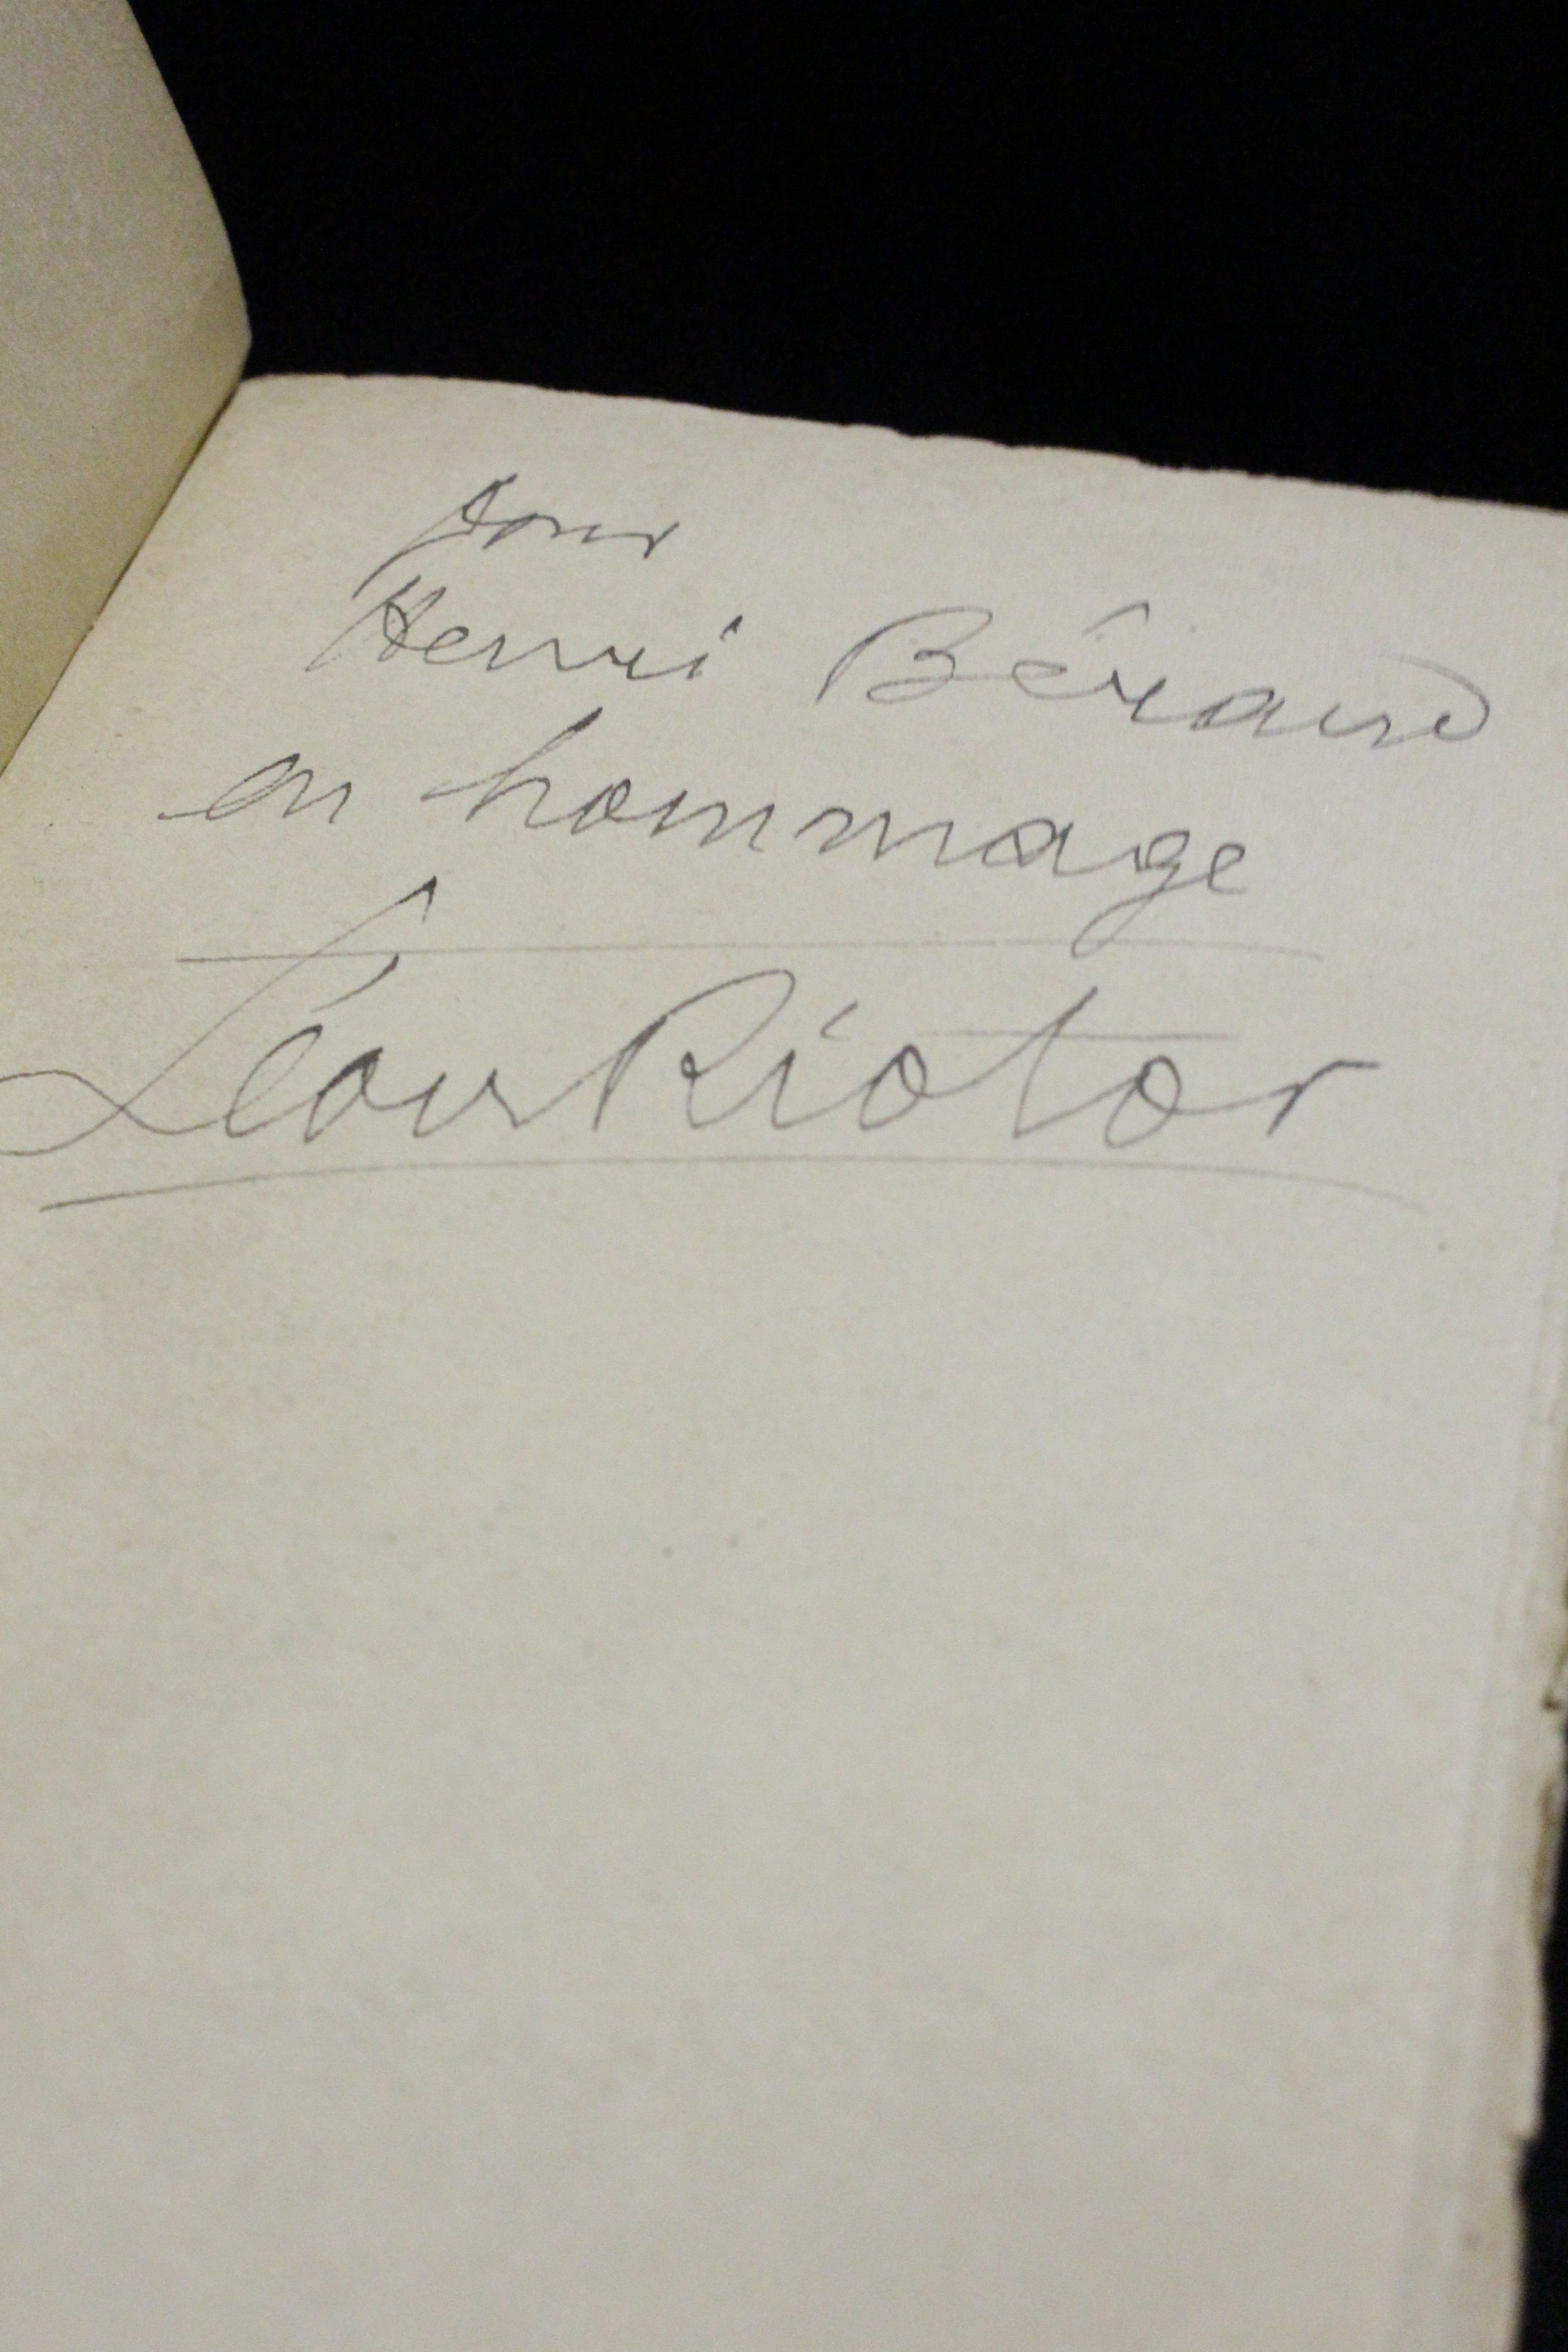 pour
Henri Béraud
en hommage
Léon Riotor